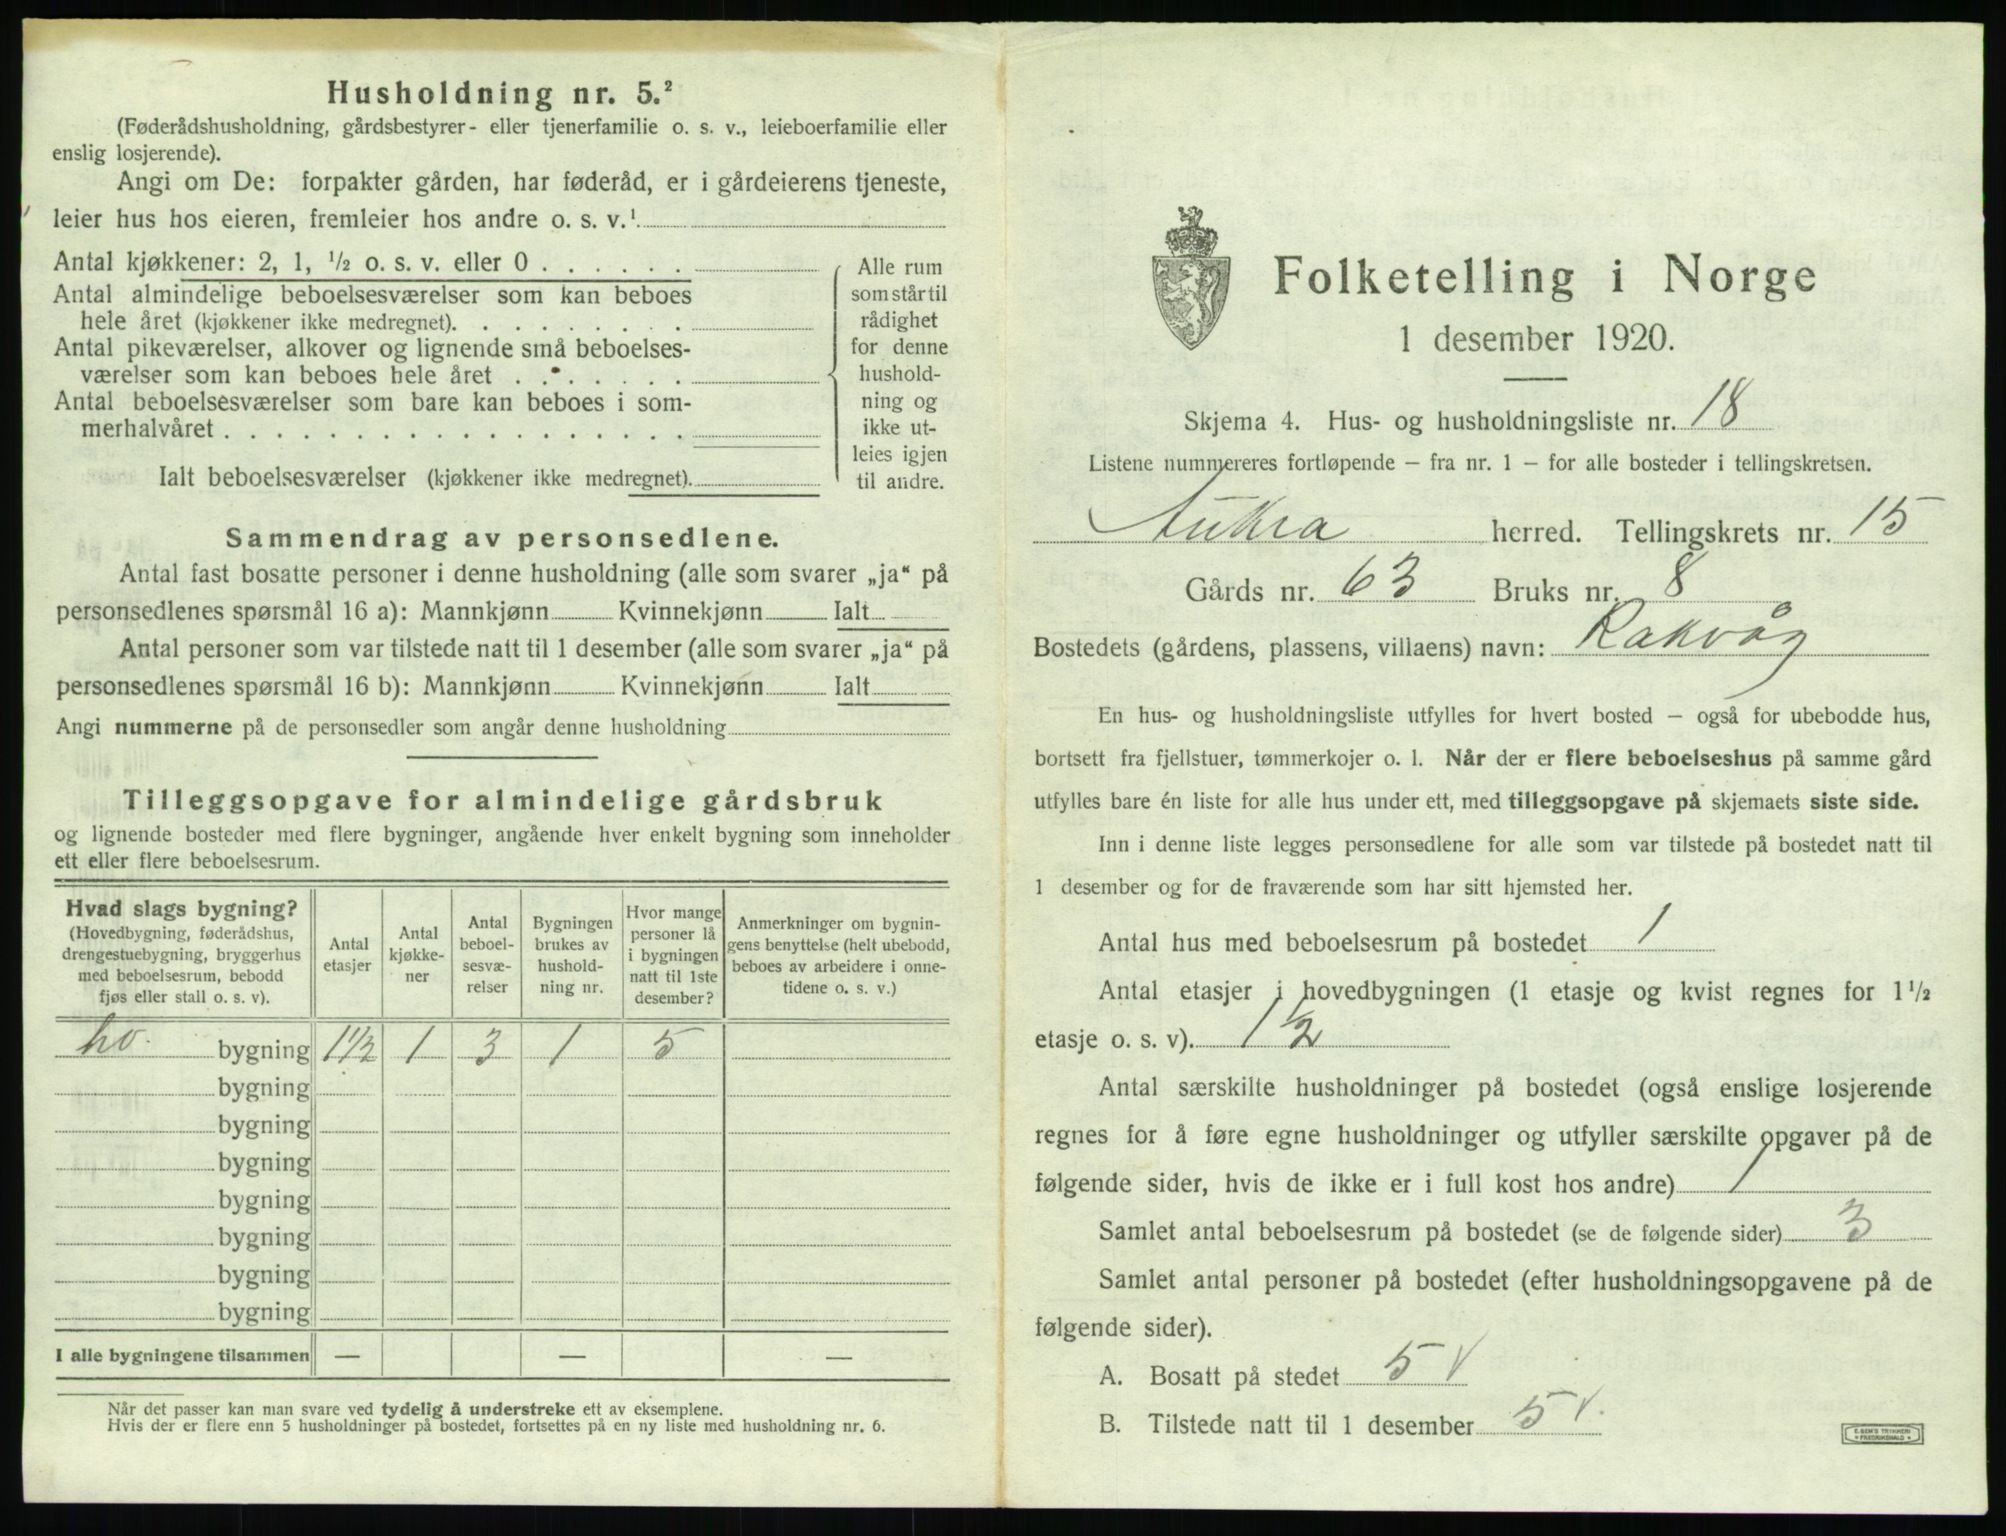 Husholdning nr. 5.²
(Føderådshusholdning, gårdsbestyrer- eller tjenerfamilie o. s. v., leieboerfamilie eller
enslig losjerende).
Angi om De: forpakter gården, har føderåd, er i gårdeierens tjeneste,
leier hus hos eieren, fremleier hos andre o. s. v.¹
Antal kjøkkener: 2, 1, ½ o. s. v. eller 0 . . . . . .
Antal almindelige beboelsesværelser som kan beboes
hele året (kjøkkener ikke medregnet). . . . . . . . .
Antal pikeværelser, alkover og lignende små beboelses-
værelser som kan beboes hele året . . . . . . .
Antal beboelsesværelser som bare kan beboes i som-
merhalvåret . . . . . . . . . . . . . . . . . .
Ialt beboelsesværelser (kjøkkener ikke medregnet).
Alle rum
som står til
rådighet
for denne
hushold-
ning og
ikke ut-
leies igjen
til andre.
Sammendrag av personsedlene.
Antal fast bosatte personer i denne husholdning (alle som svarer „ja“ på
personsedlenes spørsmål 16 a): Mannkjønn Kvinnekjønn Ialt
Antal personer som var tilstede natt til 1 desember (alle som svarer „ja“ på
personsedlenes spørsmål 16 b): Mannkjønn Kvinnekjønn Ialt
Angi nummerne på de personsedler som angår denne husholdning
Tilleggsopgave for almindelige gårdsbruk
og lignende bosteder med flere bygninger, angående hver enkelt bygning som inneholder
ett eller flere beboelsesrum.
Hvad slags bygning?
(Hovedbygning, føderådshus,
drengestuebygning, bryggerhus
med beboelsesrum, bebodd
fjøs eller stall o. s. v).
Antal
etasjer
Antal
kjøkke-
ner
Antal
beboel-
sesvæ-
relser
Bygningen
brukes av
hushold-
ning nr.
Hvor mange
personer lå
i bygningen
natt til 1ste
desember?
Anmerkninger om bygnin-
gens benyttelse (helt ubebodd,
beboes av arbeidere i onne-
tidene o. s. v.)
ho. bygning 1½ 1 3 1 5
bygning
bygning
bygning
bygning
bygning
bygning
bygning
I alle bygningene tilsammen — — —
Når det passer kan man svare ved tydelig å understreke ett av eksemplene.
Hvis der er flere enn 5 husholdninger på bostedet, fortsettes på en ny liste med husholdning nr. 6.
Folketelling i Norge
1 desember 1920.
Skjema 4. Hus- og husholdningsliste nr. 18
Listene nummereres fortløpende – fra nr. 1 – for alle bosteder i tellingskretsen.
Aukra herred. Tellingskrets nr. 15
Gårds nr. 63 Bruks nr. 8
Bostedets (gårdens, plassens, villaens) navn: Rakvåg
En hus- og husholdningsliste utfylles for hvert bosted – også for ubebodde hus,
bortsett fra fjellstuer, tømmerkojer o. l. Når der er flere beboelseshus på samme gård
utfylles bare én liste for alle hus under ett, med tilleggsopgave på skjemaets siste side.
Inn i denne liste legges personsedlene for alle som var tilstede på bostedet natt til
1 desember og for de fraværende som har sitt hjemsted her.
Antal hus med beboelsesrum på bostedet 1
Antal etasjer i hovedbygningen (1 etasje og kvist regnes for 1½
etasje o. s. v). 1½
Antal særskilte husholdninger på bostedet (også enslige losjerende
regnes for å føre egne husholdninger og utfyller særskilte opgaver på de
følgende sider, hvis de ikke er i full kost hos andre) 1
Samlet antal beboelsesrum på bostedet (se de følgende sider) 3
Samlet antal personer på bostedet (efter husholdningsopgavene på de
følgende sider).
A. Bosatt på stedet 5 v
B. Tilstede natt til 1 desember 5 v.
E. SEM'S TRYKKERI
FREDRIKSHALD